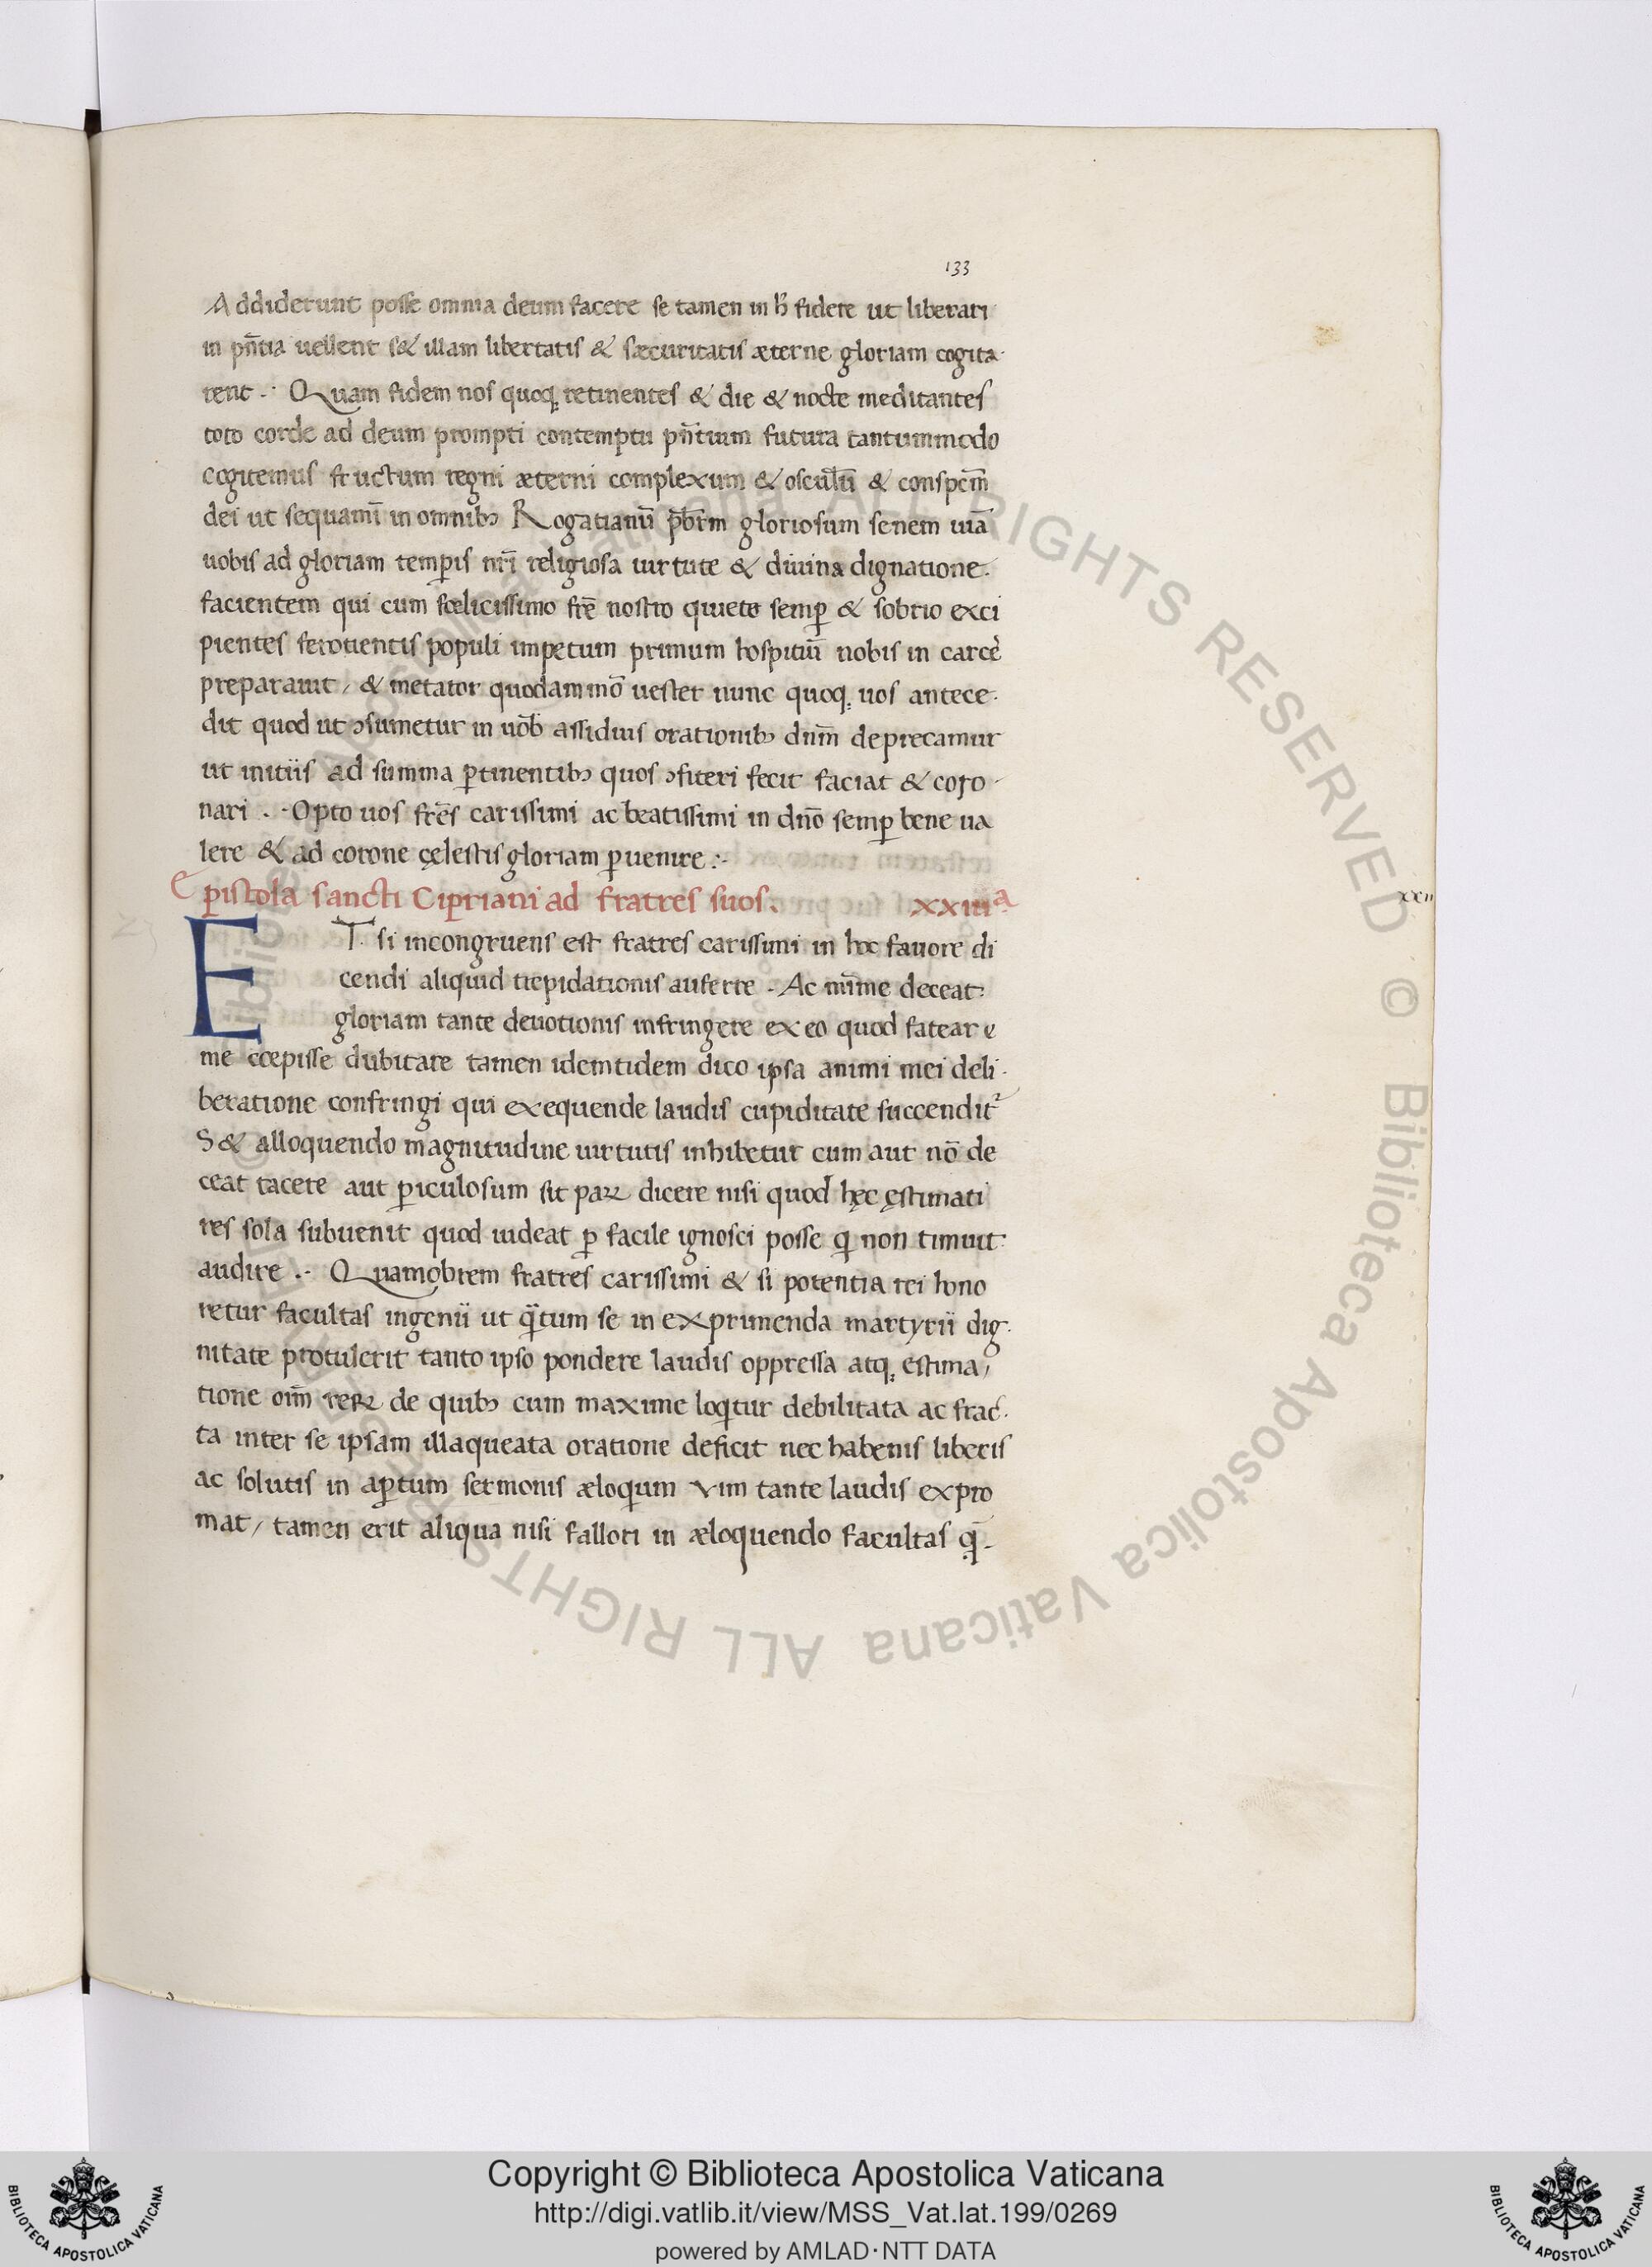 133
Addiderunt posse omnia deum facere se tamen in h̄ fidere ut liberari
in pn̄tia uellent s& illam libertatis & sæcuritatis æterne gloriam cogita-
rent .· Quam fidem nos quoq; retinentes & die & nocte meditantes
toto corde ad deum prompti contemptu pn̄tium futura tantummodo
cogitemus fructum regni æterni complexum & osculū & conspcm̄
dei ut sequamī in omnibꝫ Rogatianū pb̄rm gloriosum senem uiā
uobis ad gloriam temꝑis nrī religiosa uirtute & diuina dignatione-
facientem qui cum fœlicissimo frē nostro quieto semꝑ & sobrio exci
pientes ferotientis populi impetum primum hospitiū uobis in carcē
preparauit / & metator quodam mō uester nunc quoq; uos antece-
dit quod ut ↄsumetur in uōb assiduis orationibꝫ dnm̄ deprecamur
ut initiis ad summa ꝑtinentibꝫ quos ↄfiteri fecit faciat & coro-
nari .·Opto uos frēs carissimi ac beatissimi in dnō semꝑ bene ua
lere & ad corone cęlestis gloriam ꝑuenire :·
Epistola sancti Cipriani ad fratres suos. xxiiiᵃ
xxii
ET si incongruens est fratres carissimi in hoc fauore di
cendi aliquid trepidationis auferre . Ac minīme deceat
gloriam tante deuotionis infringere ex eo quod fatear e
me cœpisse dubitare tamen idemtidem dico ipsa animi mei deli-
beratione confringi qui exequende laudis cupiditate succendit᷑
S& alloquendo magnitudine uirtutis inhibetur cum aut nō de
ceat tacere aut ꝑiculosum sit paꝝ dicere nisi quod hęc ęstimati
res sola subuenit quod uideat ꝑ facile ignosci posse q̇ non timuit
audire .· Quamobrem fratres carissimi & si potentia rei hono
retur facultas ingenii ut qᷓtum se in exprimenda martyrii dig-
nitate protulerit tanto ipso pondere laudis oppressa atq; estima/
tione oīm reꝝ de quibꝫ cum maxime loqtur debilitata ac frac-
ta inter se ipsam illaqueata oratione deficit nec habenis liberis
ac solutis in aꝑtum sermonis æloqium vim tante laudis expro
mat / tamen erit aliqua nisi fallor in æloquendo facultas q̄-
Copyright © Biblioteca Apostolica Vaticana
http://digi.vatlib.it/view/MSS_Vat.lat.199/0269
powered by AMLAD·NTT DATA
BIBLIOTECA APOSTOLICA VATICANA
BIBLIOTECA APOSTOLICA VATICANA
© Biblioteca Apostolica Vaticana ALL RIGHTS RESERVED © Biblioteca Apostolica Vaticana ALL RIGHTS RESERVED